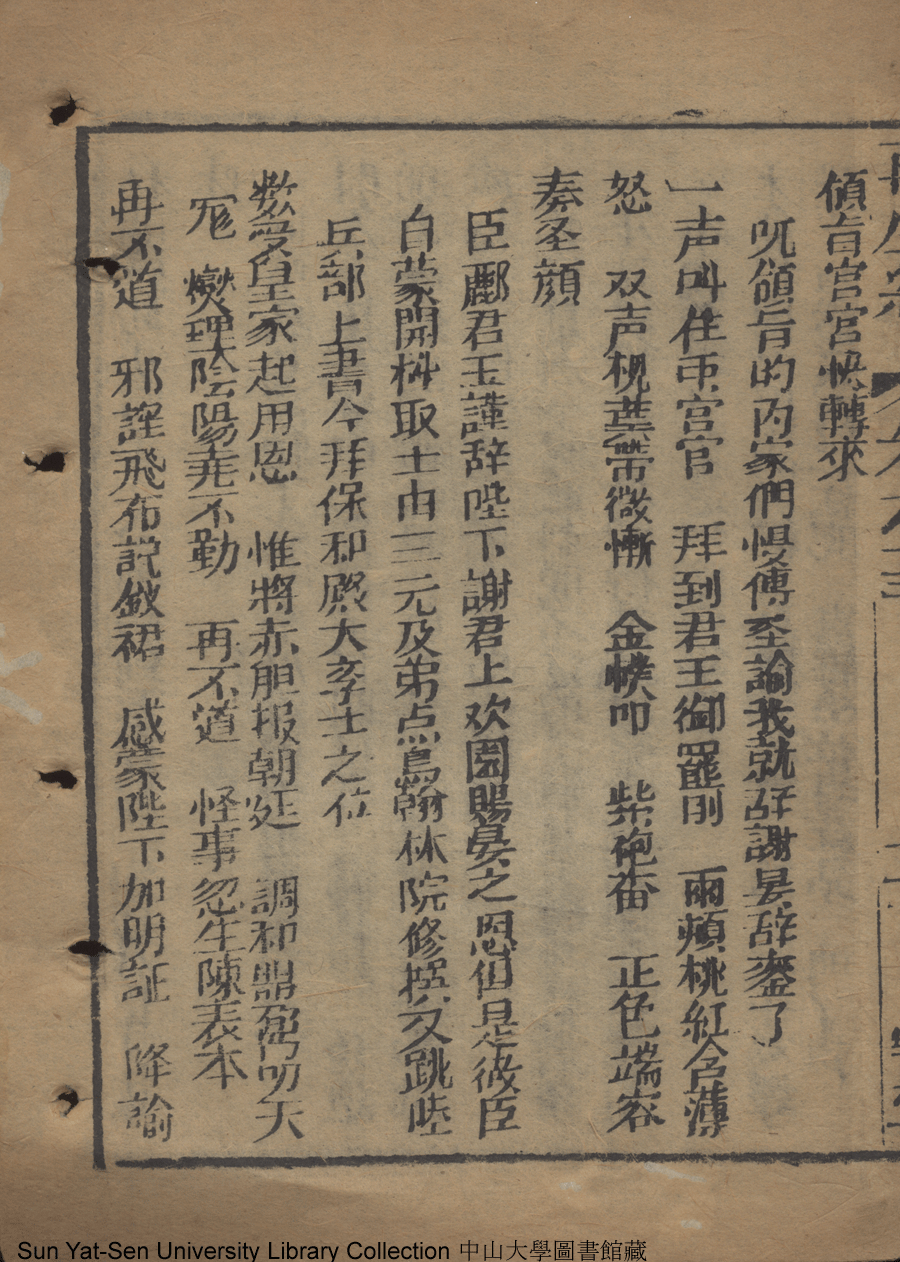 傾旨宮宮快轉來
吼領旨的内家們慢傳圣諭我就辞謝晏辞銮了
一声叫住束宫官 拜到君王御罷前 兩頰桃紅含薄
怒 双声梘葉帶微慚 金幞叩 柴砲畨 正色端容
奏圣顔
臣酈君玉謹辞陛下謝君上欢園賜晏之恩但是彼臣
自蒙開科取士由三元及弟点鳥翰林院修撰父跳陞
兵部上書今拜保和殿大孛士之位
数受皇家起用恩 惟將赤胆报朝廷 調和鼎鼐叨天
㝃 燮理陰陽垚不勤 再不道 怪事忽生陳表本
再不道 邪謹飛布説釵裙 感蒙陛下加明証 降諭
Sun Yat-Sen University Library Collection 中山大學圖書館藏